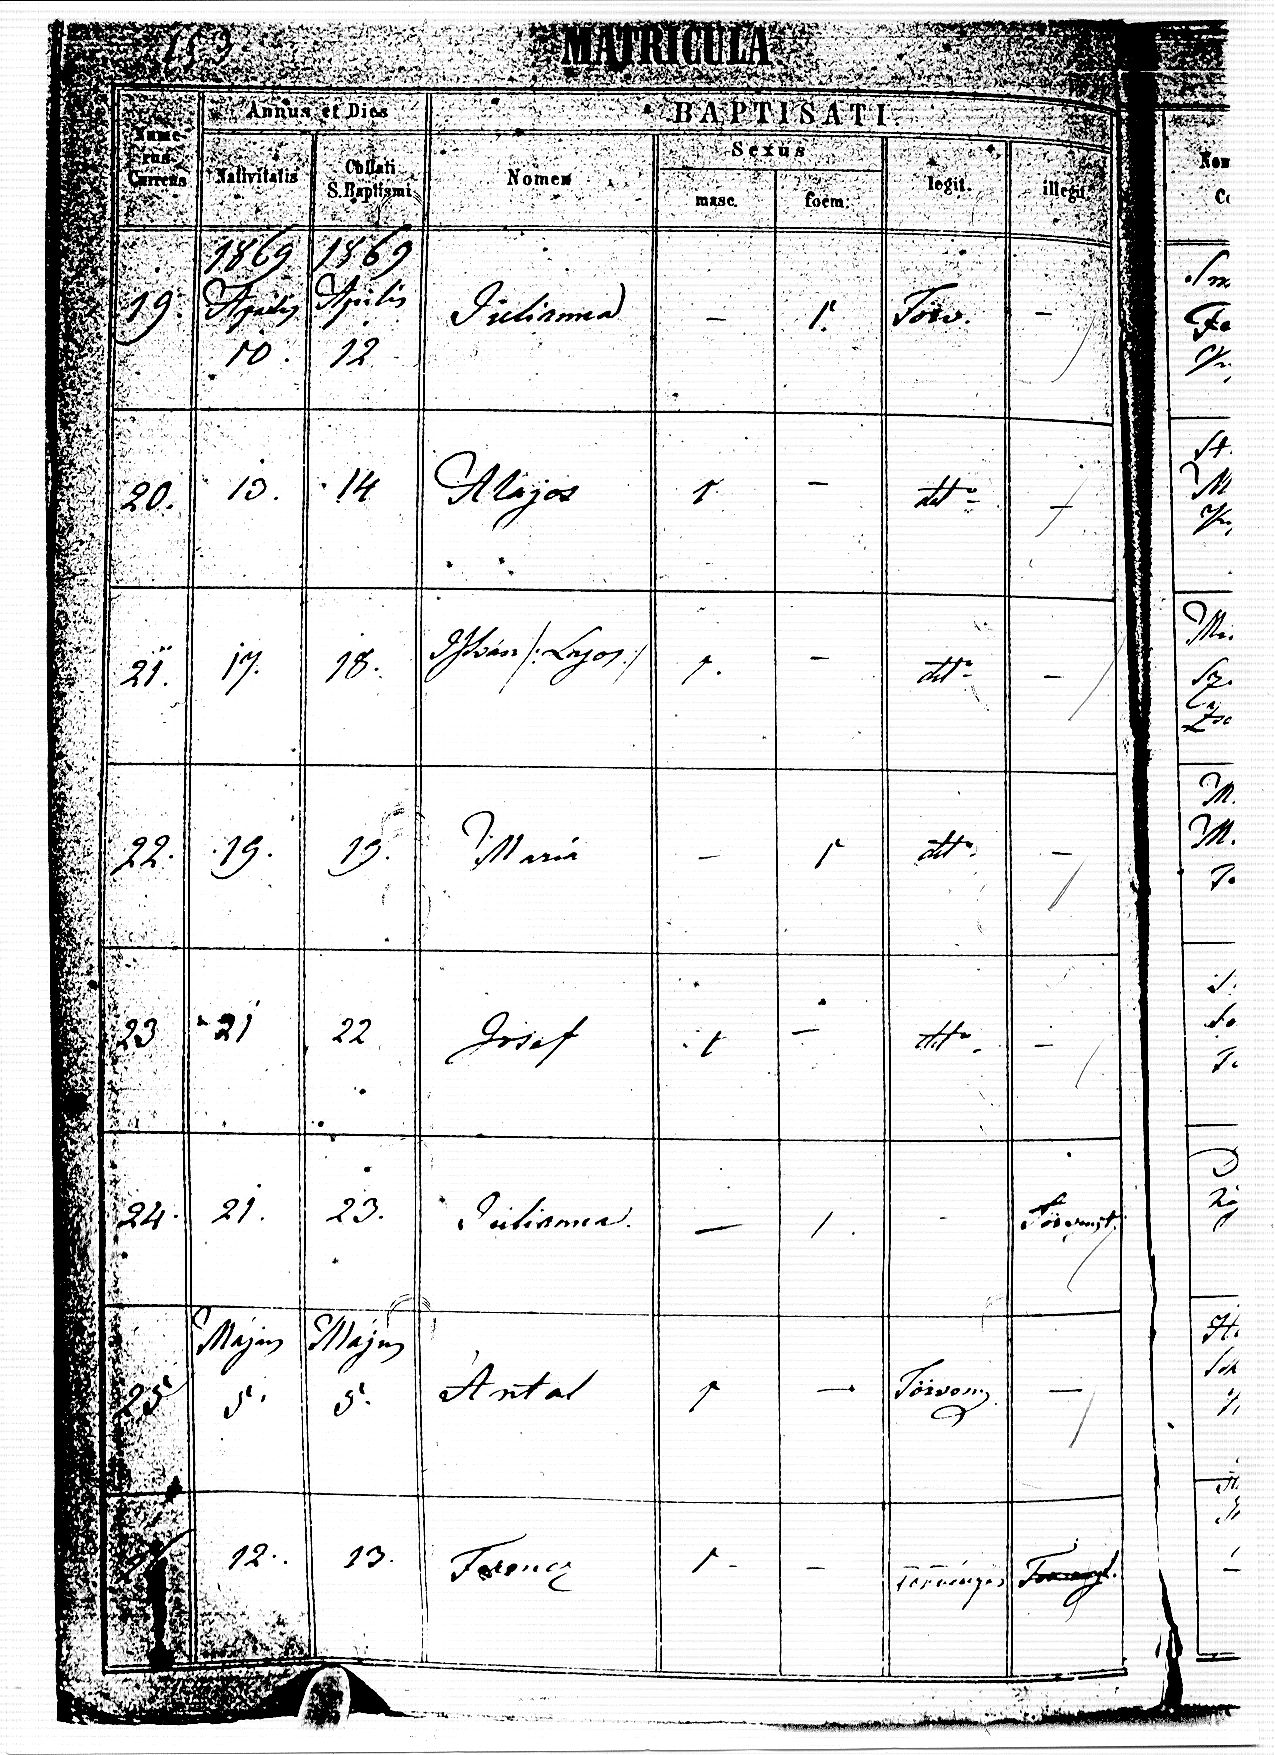 153
MATRICULA
Nume-rus Currens
Annus et Dies
BAPTISATI.
Nativitatis
Collati S. Baptismi
Nomen
Sexus
masc.
foem.
legit.
illegit.
19. 1869 Aprilis 10. 1869 Aprilis 12 Julianna – 1. Törv. –
20. 13. 14 Alajos 1 – detto –
21. 17. 18. István /: Lajos :/ 1. – detto –
22. 19. 19. Maria – 1 detto –
23 21 22 Josef 1 – detto –
24. 21. 23. Julianna. – 1. - Törvenyt.
25 Május 5. Május 5. Antal 1 – Törveny. –
12. 13. Ferencz 1 - – Törvényes